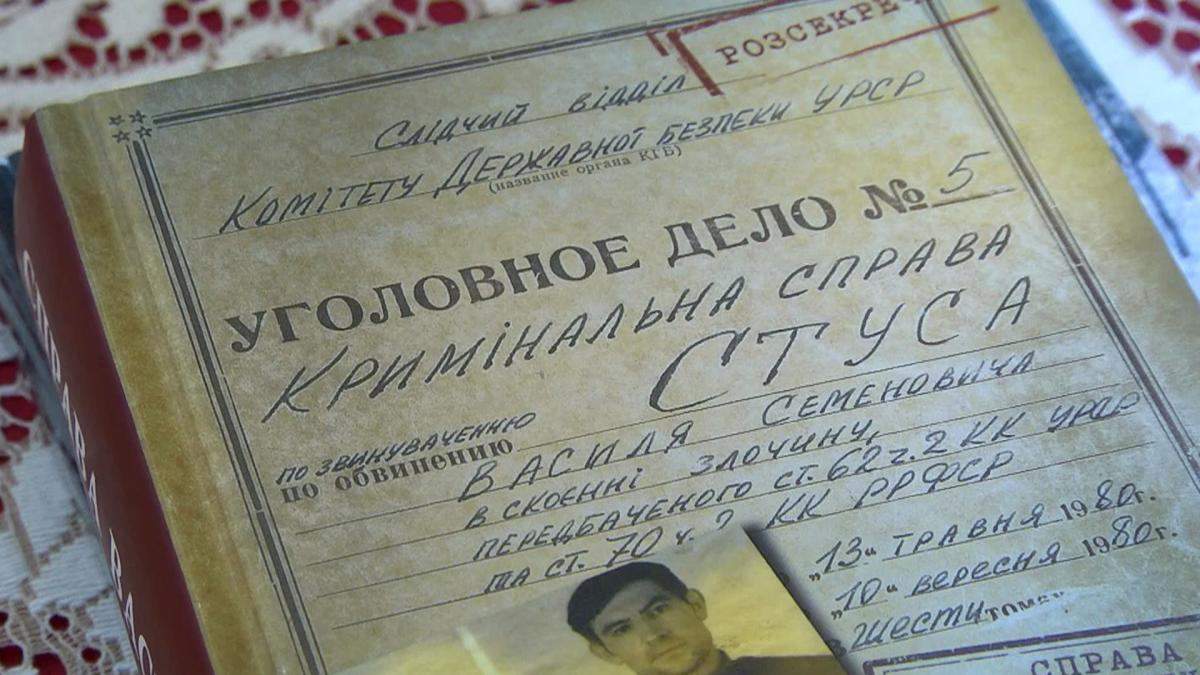 РОЗСЕКРЕ
Слідчий відділ
Комітету Державної безпеки УРСР
(название органа КГБ)
УГОЛОВНОЕ ДЕЛО № 5
Кримінальна справа
по звинуваченню СТУСА
по обвинению Василя Семеновича
в скоєнні злочину,
передбаченого ст. 62 ч. 2 КК УРСР
та ст. 70 ч. 2 КК РРФСР
„13“ травня 1980г.
„10“ вересня 1980г.
в шести томах
СПРАВА
СПРАВА ВАС